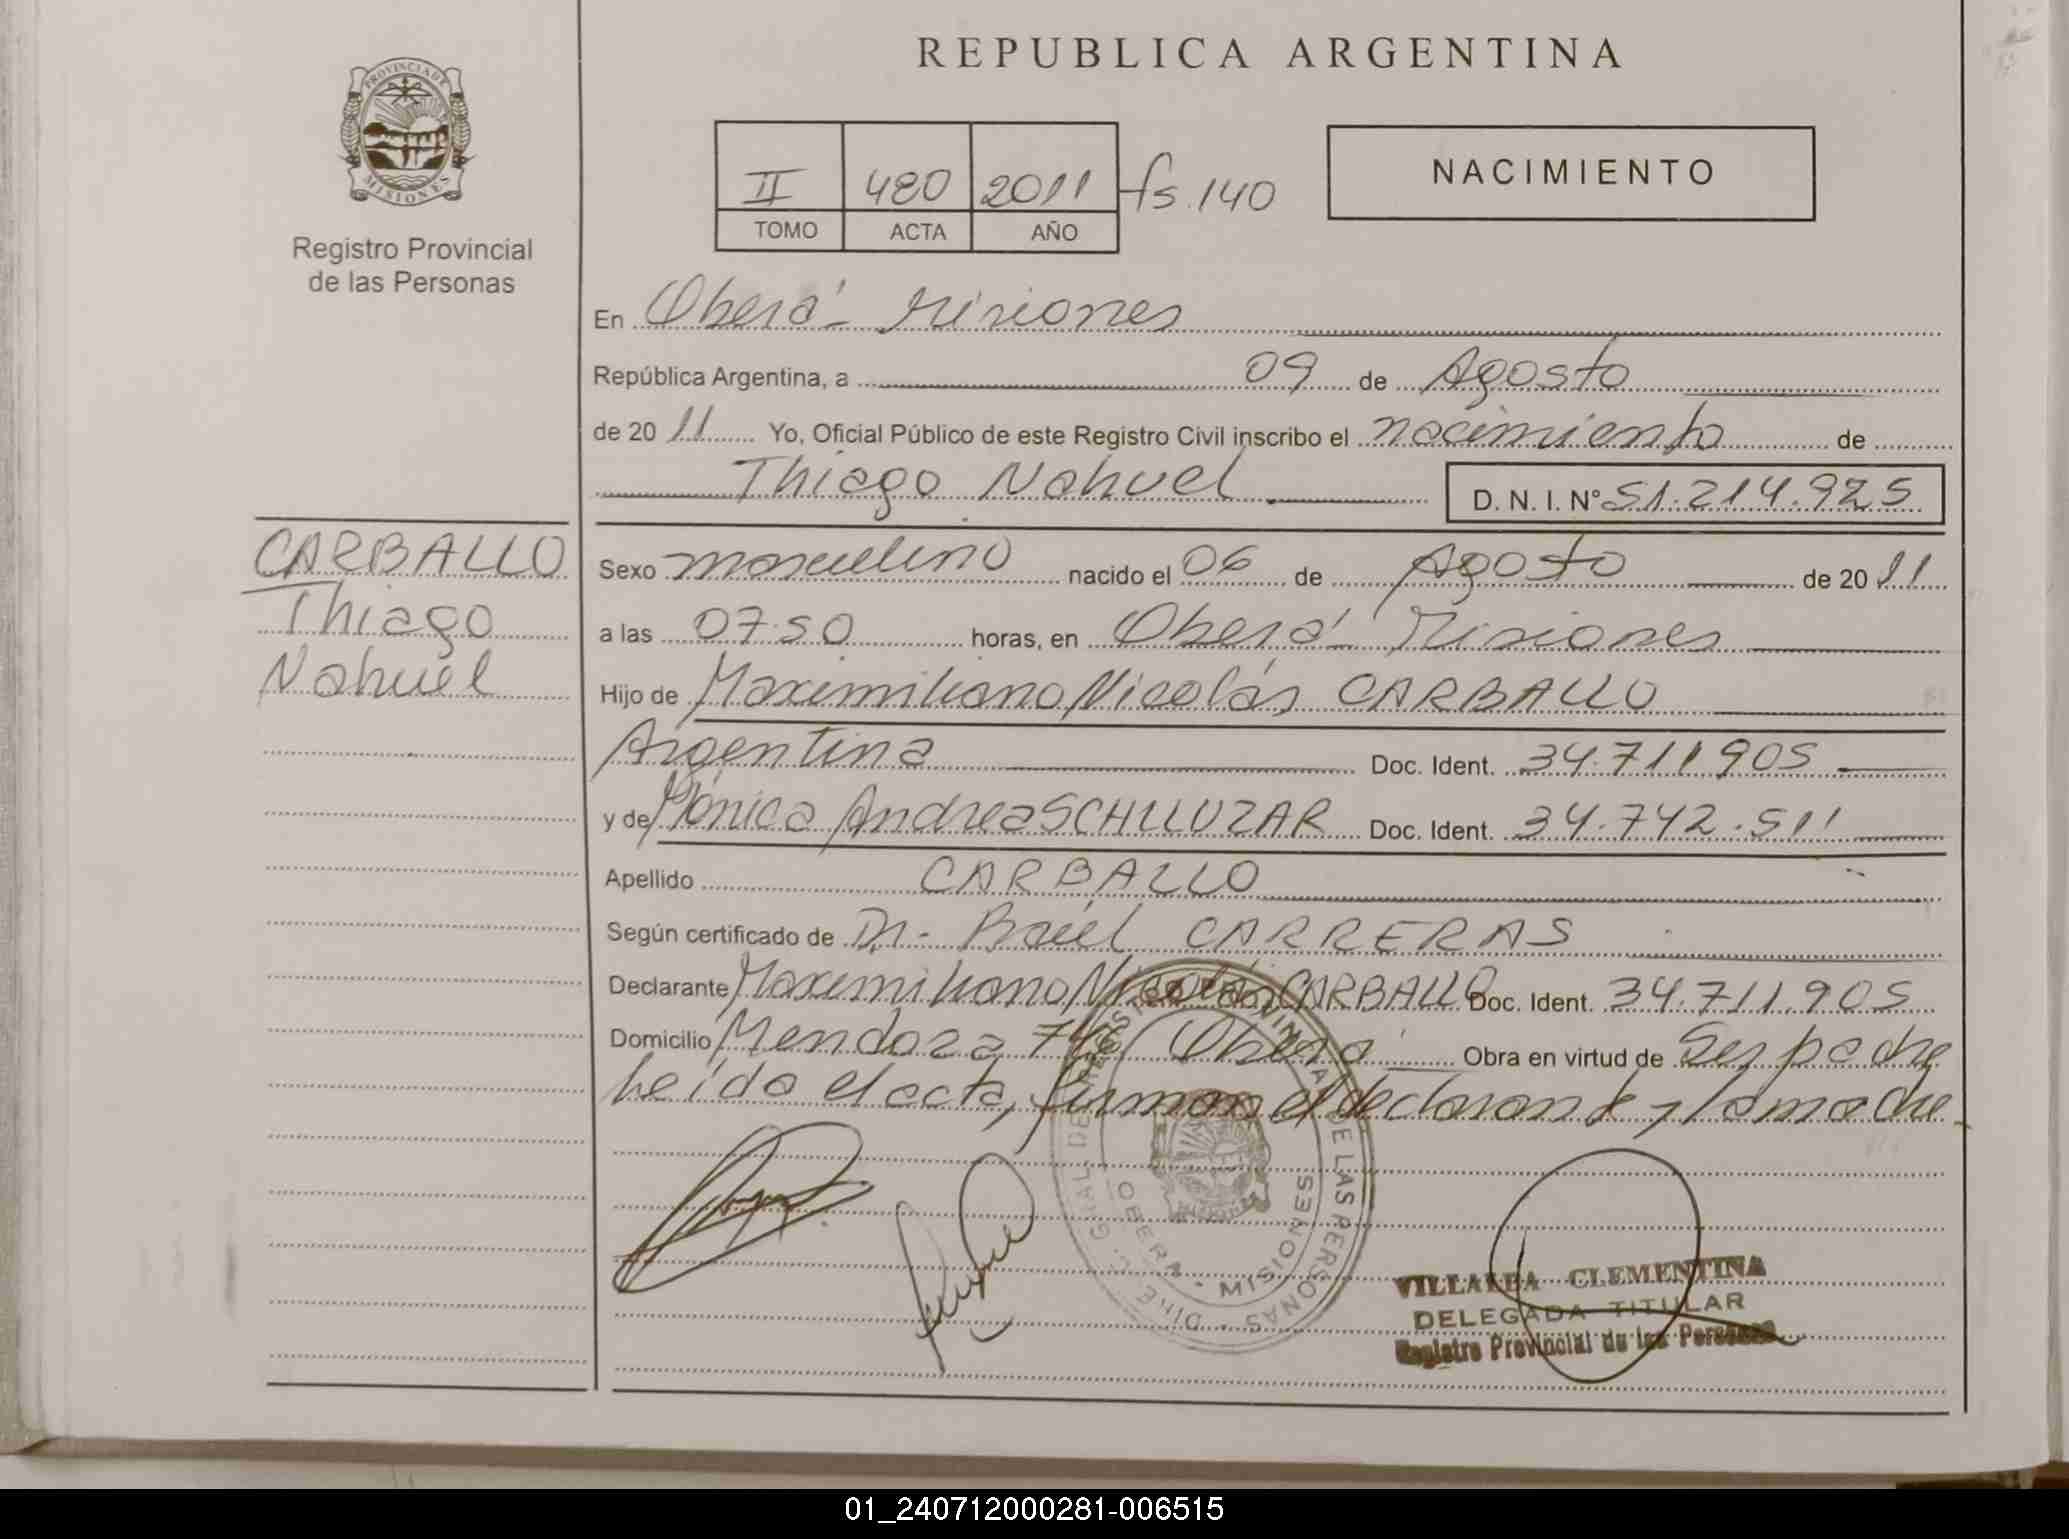 REPUBLICA ARGENTINA
PROVINCIA DE
MISIONES
Registro Provincial
de las Personas
II 480 2011 fs. 140
TOMO ACTA AÑO
NACIMIENTO
En Oberá - Misiones
República Argentina, a 09 de Agosto
de 2011 Yo, Oficial Público de este Registro Civil inscribo el nacimiento de
Thiago Nahuel D. N. I. N° 51.214.925
CARBALLO
Thiago
Nahuel
Sexo masculino nacido el 06 de Agosto de 2011
a las 07:50 horas, en Oberá - Misiones
Hijo de Maximiliano Nicolás CARBALLO
Argentina Doc. Ident. 34.711.905
y de Mónica Andrea Doc. Ident. 34.742.511
Apellido CARBALLO
Según certificado de Dr. CARRERAS
Declarante Maximiliano Nicolás CARBALLO Doc. Ident. 34.711.905
Domicilio Mendoza Oberá Obra en virtud de Ser padre
Leída el acta, firman el declarante y la madre
DE LAS PERSONAS
OBERA - MISIONES
VILLALBA CLEMENTINA
DELEGADA TITULAR
Registro Provincial de las Personas
01_240712000281-006515